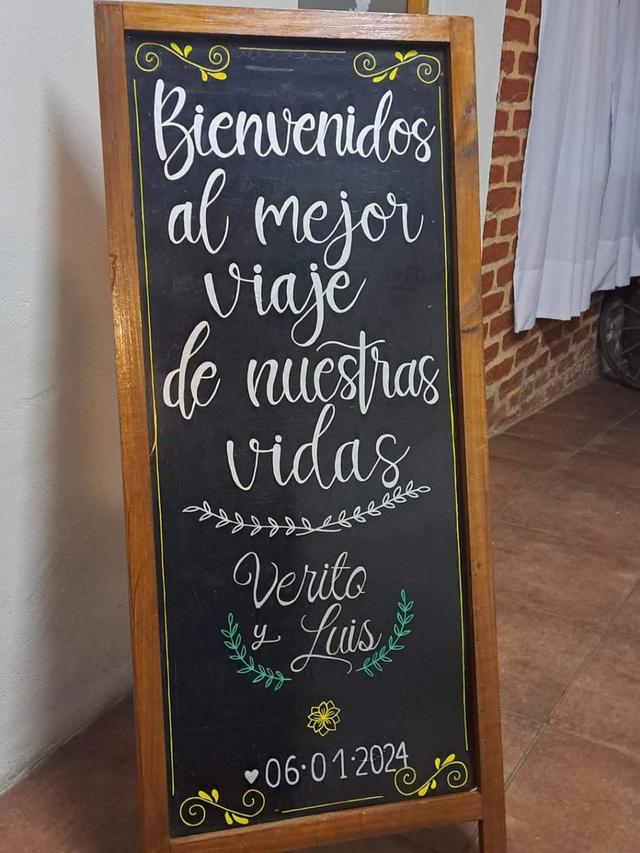 Bienvenidos
al mejor
viaje
de nuestras
vidas
Verito
y Luis
06.01.2024